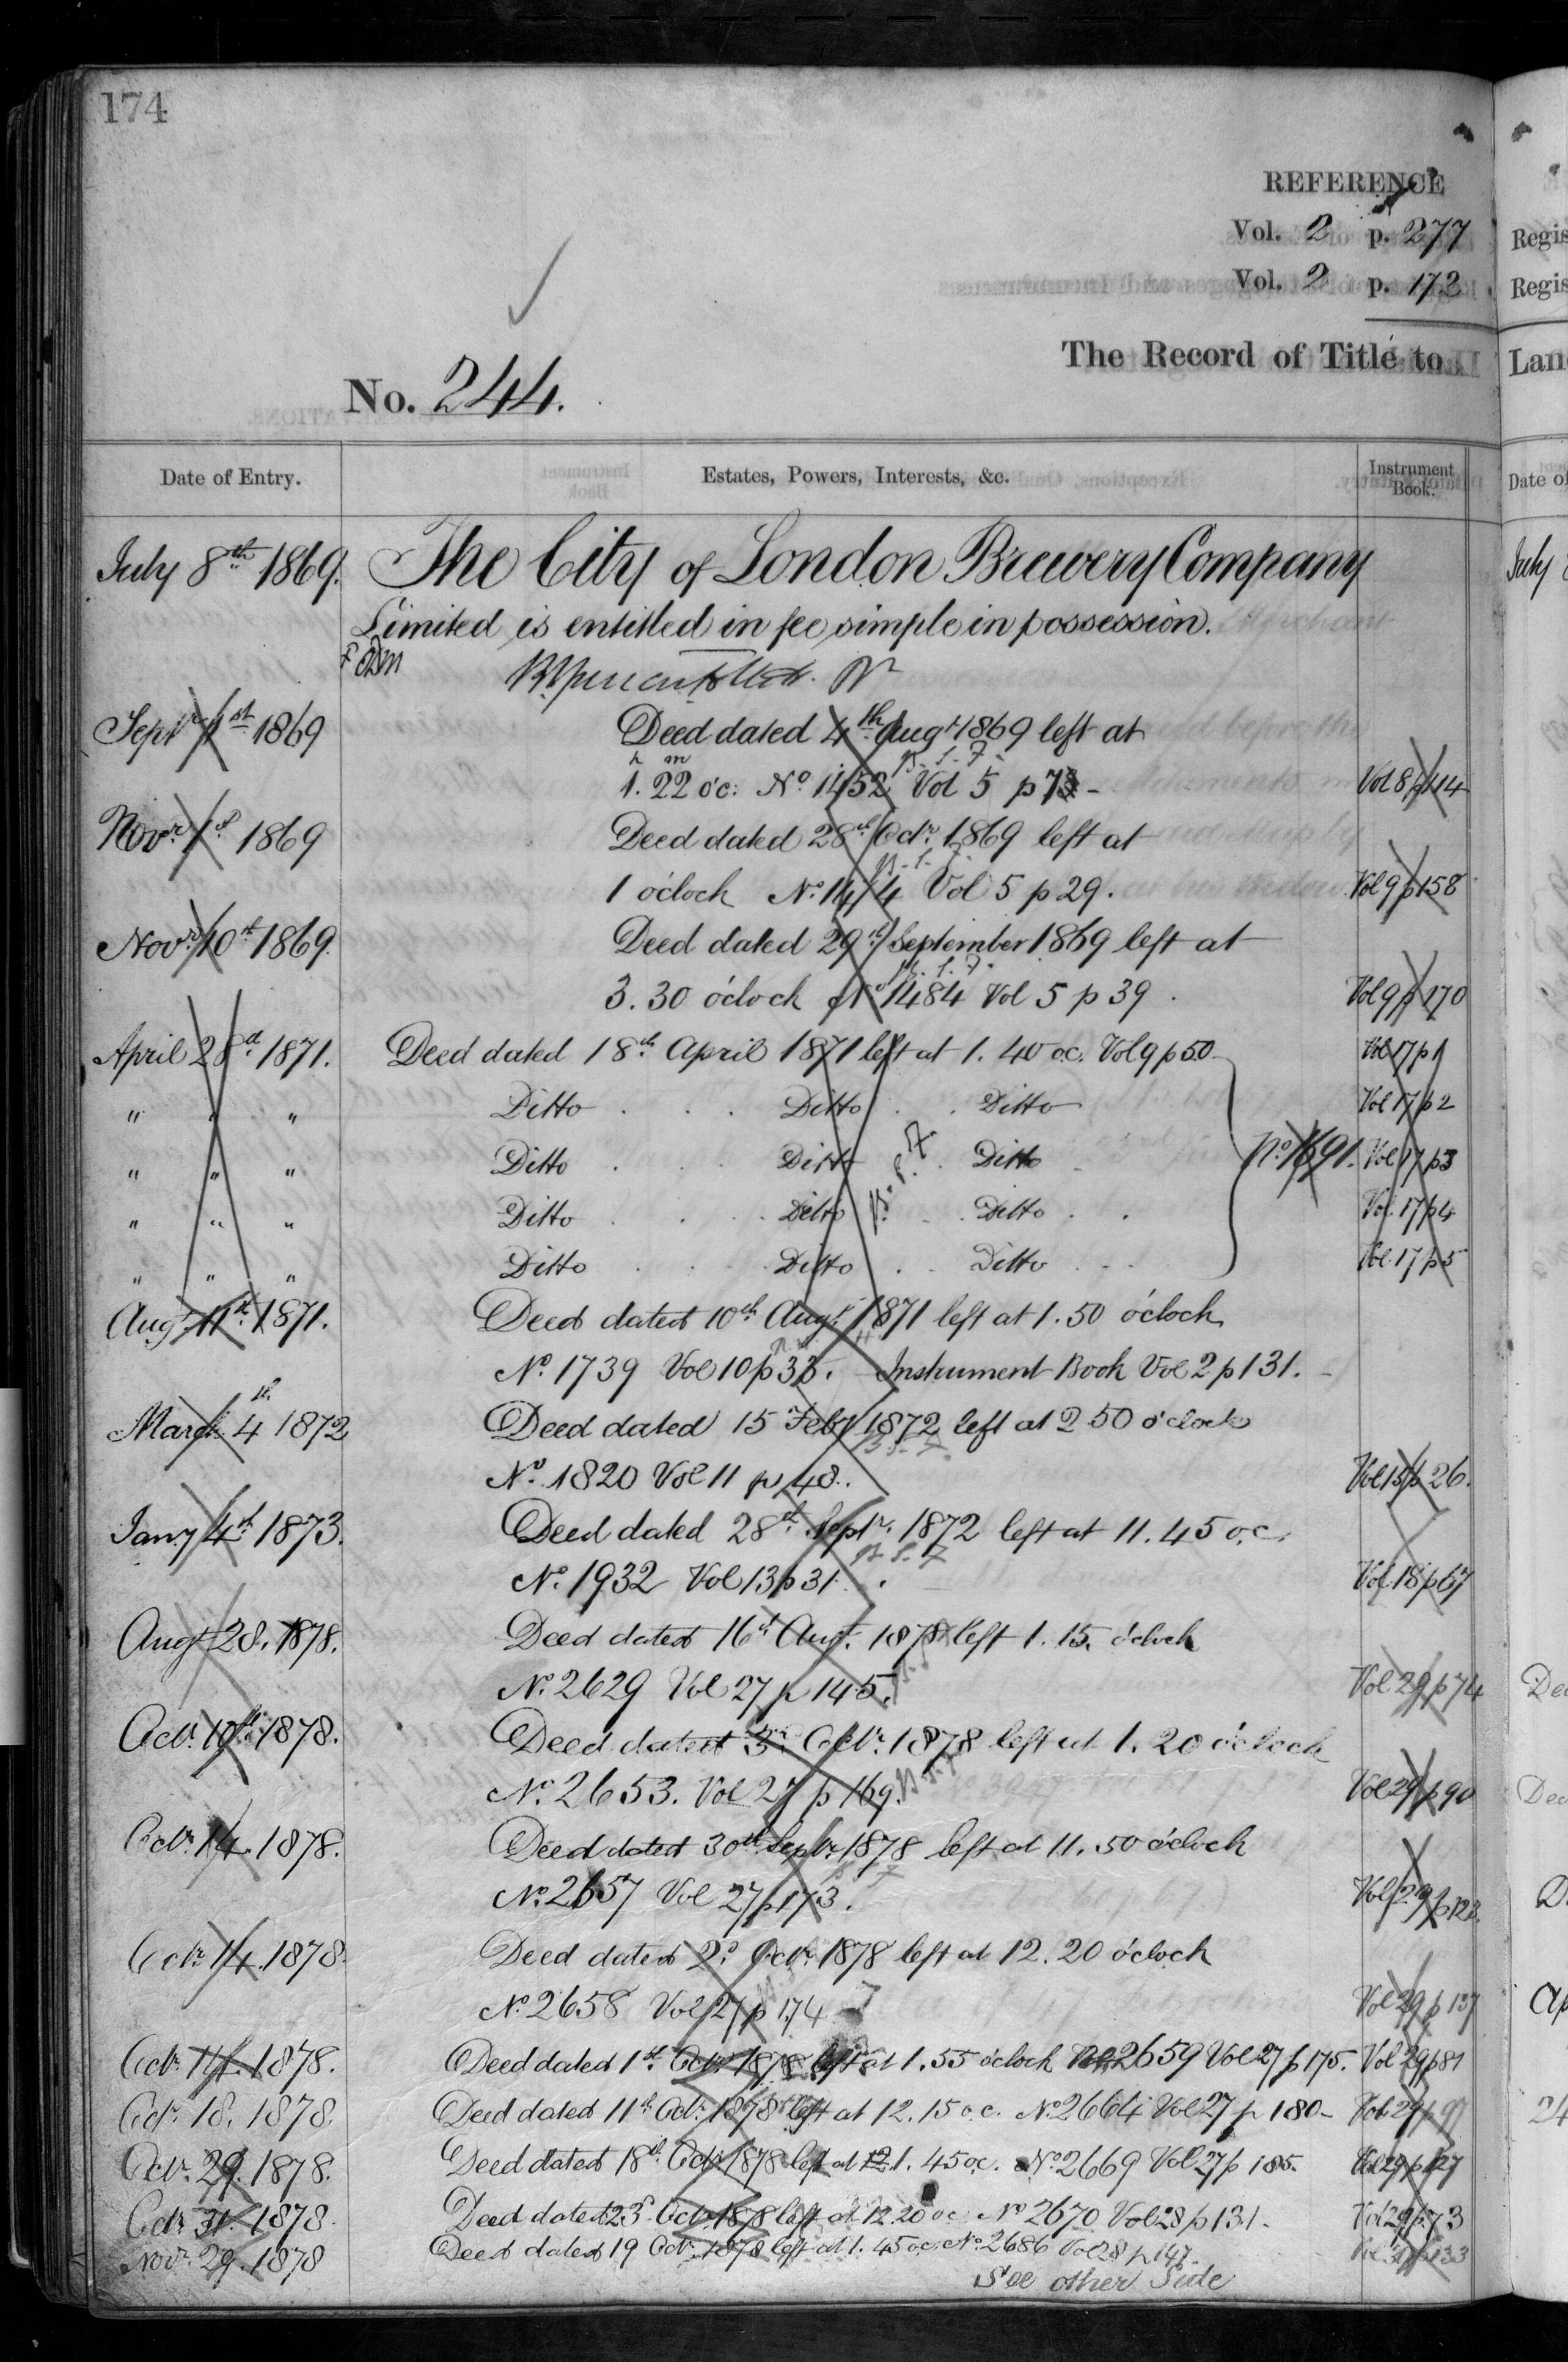 174
REFERENCE
Vol. 2 p. 277
Vol. 2 p. 172
The Record of Title to
No. 244.
Date of Entry. Estates, Powers, Interests, &c. Instrument Book.
July 8th 1869. The City of London Brewery Company
Limited is entitled in fee simple in possession.
Septr 1st 1869 Deed dated 4th Augt 1869 left at
1. 22 oc: No 1452 Vol 5 p 7 Vol 8 p 114
Novr 1st 1869 Deed dated 28th Octr 1869 left at
1 o'clock No. 1474 Vol 5 p 29. Vol 9 p 158
Novr 10th 1869. Deed dated 29th September 1869 left at
3. 30 o'clock No 1484 Vol 5 p 39. Vol 9 p 170
April 28th 1871. Deed dated 18th April 1871 left at 1. 40 oc. Vol 9 p 50 Vol 17 p 1
" " " Ditto Ditto Ditto Vol 17 p 2
" " " Ditto Ditto Ditto No. 1691. Vol 17 p 3
" " " Ditto Ditto Ditto Vol. 17 p 4
" " " Ditto Ditto Ditto Vol. 17 p 5
Augt. 11th 1871. Deed dated 10th Augt. 1871 left at 1. 50 o'clock
No. 1739 Vol 10 p 33. Instrument Book Vol 2 p 131.
March 4th 1872 Deed dated 15 Feby 1872 left at 2 50 o'clock
No. 1820 Vol 11 p 48. Vol 15 p 26.
Jany 4th 1873. Deed dated 28th Septr. 1872 left at 11. 45 o.c.
No. 1932 Vol 13 p 31. Vol. 18 p 67
Augt 28. 1878. Deed dated 16th Augt. 1878 left 1. 15. o'clock
No. 2629 Vol 27 p 145. Vol 29 p 74
Octr. 10th 1878. Deed dated 3rd Octr. 1878 left at 1. 20 o'clock
No. 2653. Vol 27 p 169. Vol 29 p 90
Octr. 14. 1878. Deed dated 30th Septr. 1878 left at 11. 50 o'clock
No. 2657 Vol 27 p 173. Vol 29 p 123.
Octr. 14. 1878. Deed dated 2d. Octr. 1878 left at 12. 20 o'clock
No. 2658 Vol 27 p 174 Vol 29 p 137
Octr. 14. 1878. Deed dated 1st. Octr. 1878 left at 1. 55 o'clock No. 2659 Vol 27 p 175. Vol 29 p 81
Octr. 18. 1878. Deed dated 11th Octr. 1878 left at 12. 15 o.c. No. 2664 Vol 27 p 180 Vol. 29 p 97
Octr. 29. 1878. Deed dated 18th Octr. 1878 left at 1. 45 oc. No. 2669 Vol 27 p 185. Vol 29 p 127
Octr. 31. 1878. Deed dated 23d. Octr. 1878 left at 12 20 oc No 2670 Vol 28 p 131. Vol 29 p. 73
Novr. 29. 1878 Deed dated 19 Octr. 1878 left at 1. 45 oc. No. 2686 Vol 28 p 147. p 133
See other Side